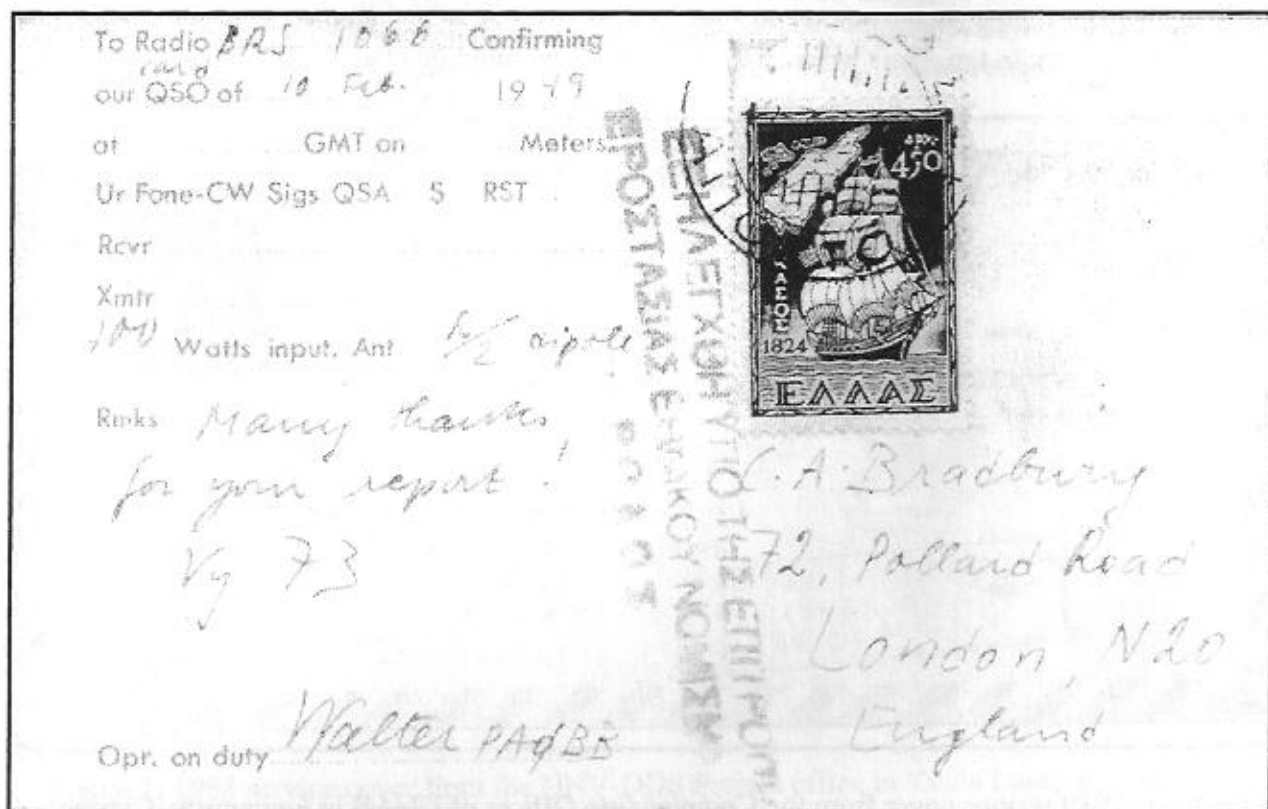 To Radio BRS 1066 Confirming
card
our QSO of 10 Feb. 1949
at GMT on Meters
Ur Fone-CW Sigs QSA 5 RST
Rcvr
Xmtr
100 Watts input. Ant λ/2 dipole
Rmks Many thanks
for your report!
Vy 73
Opr. on duty Walter PAØBB
ΔΡΧ.
450
ΚΑΣΟΣ
1824
ΕΛΛΑΣ
ΕΞΗΛΕΓΧΘΗ ΥΠΟ ΤΗΣ
ΠΡΟΣΤΑΣΙΑΣ
A. Bradbury
72, Pollard Road
London, N20
England